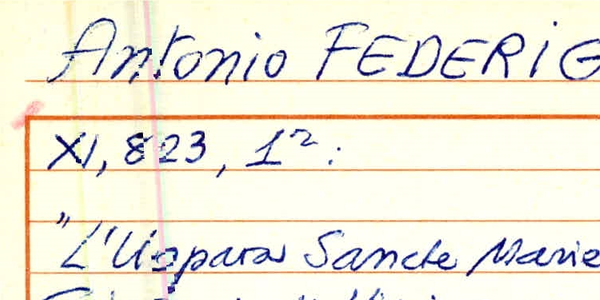 Antonio FEDERIG
XI, 823, 1r:
"L'Uopara Sancte Marie